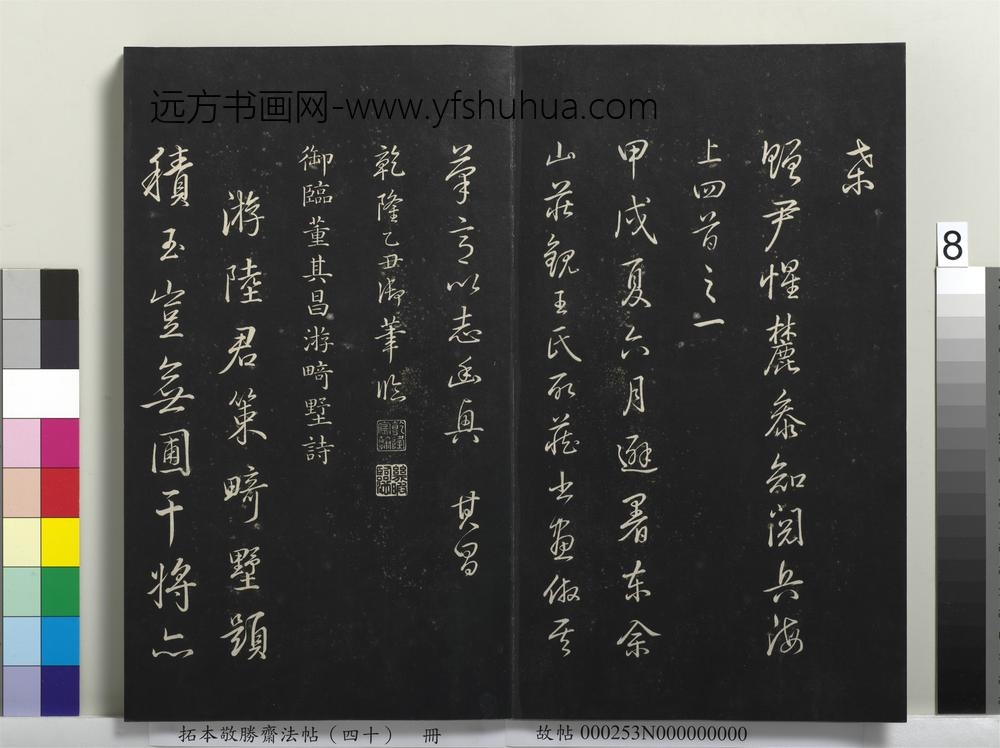 远方书画网-www.yfshuhua.com
業
贈尹惺麓参知閱兵海
上四首之一
甲戌夏六月避暑東余
山莊觀王氏所藏書畫倣其
筆意以志幽興 其昌
乾隆乙丑御筆臨
御臨董其昌游畸墅詩
游陸君策畸墅題
積玉豈無圃干將亦
8
拓本敬勝齋法帖（四十） 冊
故帖 000253N000000000